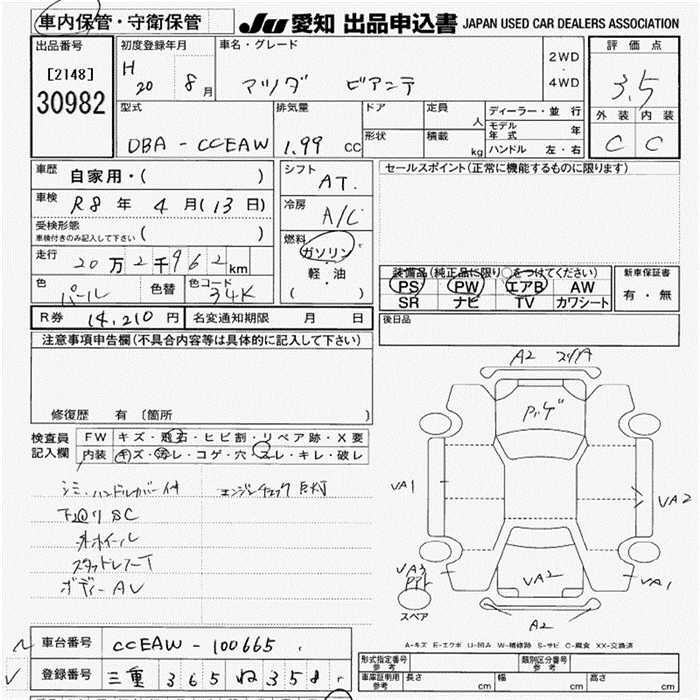 車内保管・守衛保管
JU 愛知 出品申込書 JAPAN USED CAR DEALERS ASSOCIATION
出品番号
[2148]
30982
初度登録年月
H 20 8 月
車名・グレード
マツダ ビアンテ
2WD
・
4WD
評価点
3.5
外装 内装
C C
型式
DBA - CCEAW
排気量
1.99 CC
ドア
形状
定員 人
積載 kg
ディーラー・並行
モデル年式 年
ハンドル 左・右
車歴 自家用・( )
車検 R8 年 4 月(13 日)
受検形態
車検付きのみ記入して下さい ( )
走行 20 万 2 千 962 km
色 パール 色替 色コード 34K
シフト AT.
冷房 A/C
燃料
ガソリン
・
軽・油
( )
セールスポイント(正常に機能するものに限ります)
装備品(純正品に限り○をつけてください)
PS PW エアB AW
SR ナビ TV カワシート
新車保証書
有・無
R券 14,210 円 名変通知期限 月 日
後日品
注意事項申告欄(不具合内容等は具体的に記入して下さい)
修復歴 有 〔箇所 〕
検査員記入欄
FW キズ・飛石・ヒビ割・リペア跡・X要
内装 キズ・汚レ・コゲ・穴・スレ・キレ・破レ
シミ、ハンドルカバー付 エンジンチェック 点灯
下廻り SC
外ホイール
スタッドレスT
ボディー AU
A2
VA1
VA2
VA3
VA2
VA1
スペア
A2
A-キズ E-エクボ U-凹み W-補修跡 S-サビ C-腐食 XX-交換済
車台番号 CCEAW - 100665
登録番号 三重 365 ね 358
形式指定番号 参考
類別区分番号 参考
車庫証明用 参考 長さ cm 幅 cm 高さ cm